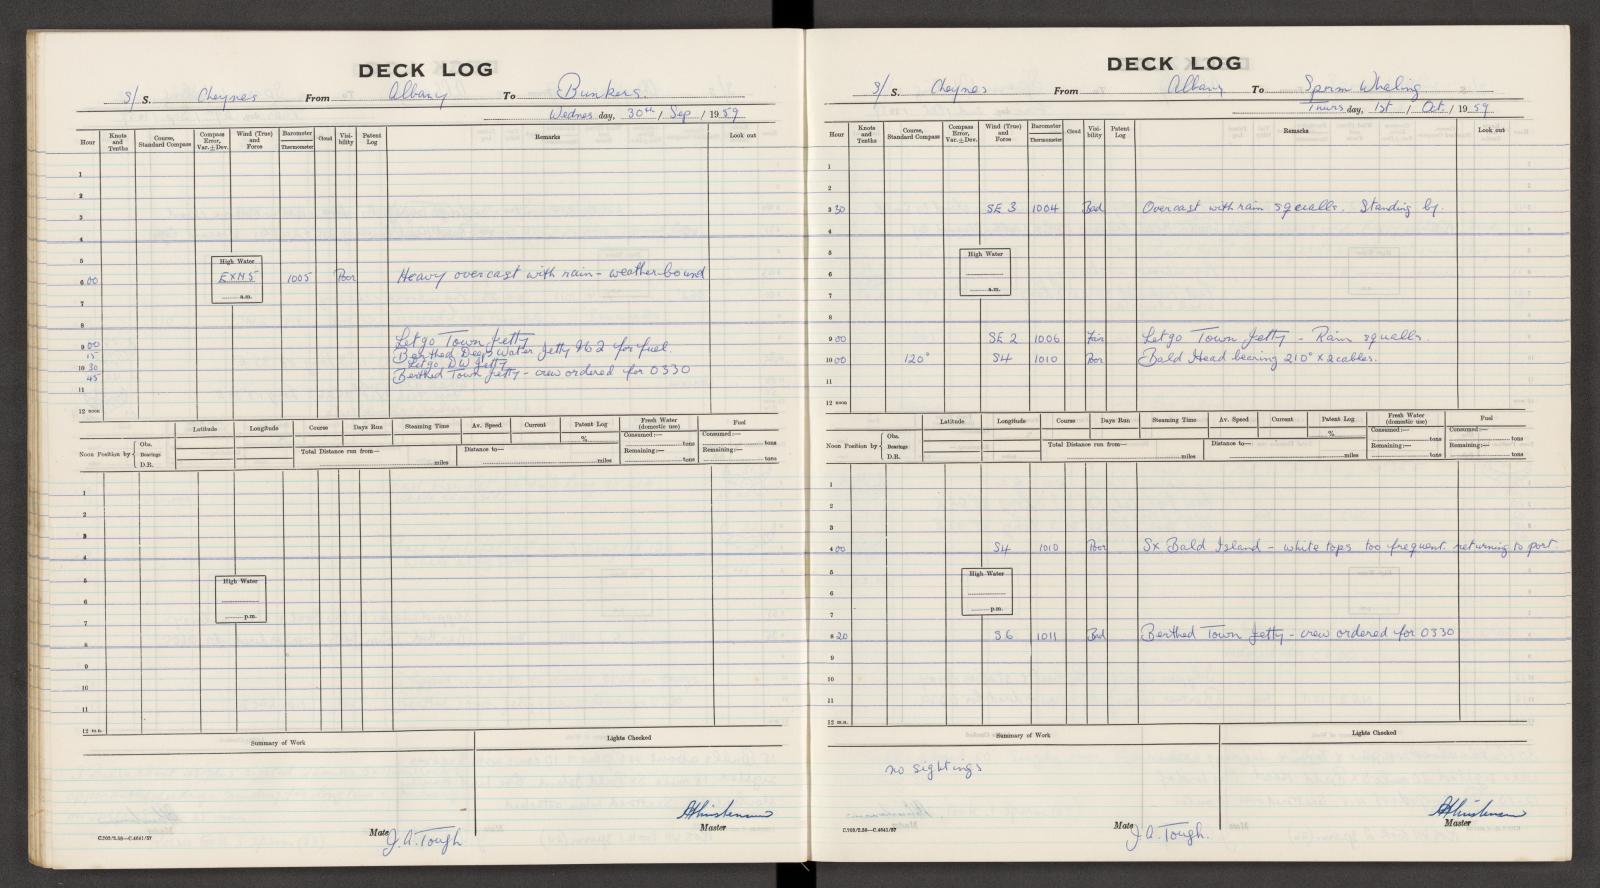 DECK LOG
S/ S. Cheynes From Albany To Bunkers.
Wednes day, 30th / Sep / 1959
Hour Knots and Tenths Course, Standard Compass Compass Error, Var. ± Dev. Wind (True) and Force Barometer Thermometer Cloud Visibility Patent Log Remarks Look out
1
2
3
4
5
High Water
6 00 ExN5 1005 Poor Heavy overcast with rain - weatherbound
a.m.
7
8
9 00 Let go Town Jetty
15 Berthed Deep Water Jetty No 2 for fuel.
10 30 Let go DW Jetty
45 Berthed Town Jetty - crew ordered for 0330
11
12 noon
Latitude Longitude Course Days Run Steaming Time Av. Speed Current Patent Log Fresh Water (domestic use) Fuel
% Consumed:— tons Consumed:— tons
Noon Position by { Obs. Bearings D.R. Total Distance run from— miles Distance to— miles Remaining:— tons Remaining:— tons
1
2
3
4
5
High Water
6
p.m.
7
8
9
10
11
12 m.n.
Summary of Work Lights Checked
C.702/2.58—C.4641/57
Mate J.A. Tough
Master
DECK LOG
S/ S. Cheynes From Albany To Sperm Whaling
Thurs day, 1st / Oct / 1959
Hour Knots and Tenths Course, Standard Compass Compass Error, Var. ± Dev. Wind (True) and Force Barometer Thermometer Cloud Visibility Patent Log Remarks Look out
1
2
3 30 SE 3 1004 Bad Overcast with rain squalls. Standing by.
4
5
High Water
6
a.m.
7
8
9 00 SE 2 1006 Fair Let go Town Jetty - Rain squalls.
10 00 120° S4 1010 Poor Bald Head bearing 210° x 2 cables.
11
12 noon
Latitude Longitude Course Days Run Steaming Time Av. Speed Current Patent Log Fresh Water (domestic use) Fuel
% Consumed:— tons Consumed:— tons
Noon Position by { Obs. Bearings D.R. Total Distance run from— miles Distance to— miles Remaining:— tons Remaining:— tons
1
2
3
4 00 S4 1010 Poor Sx Bald Island - white tops too frequent. returning to port
5
High Water
6
p.m.
7
8 20 S6 1011 Bad Berthed Town Jetty - crew ordered for 0330
9
10
11
12 m.n.
Summary of Work Lights Checked
no sightings
C.702/2.58—C.4641/57
Mate J.A. Tough.
Master